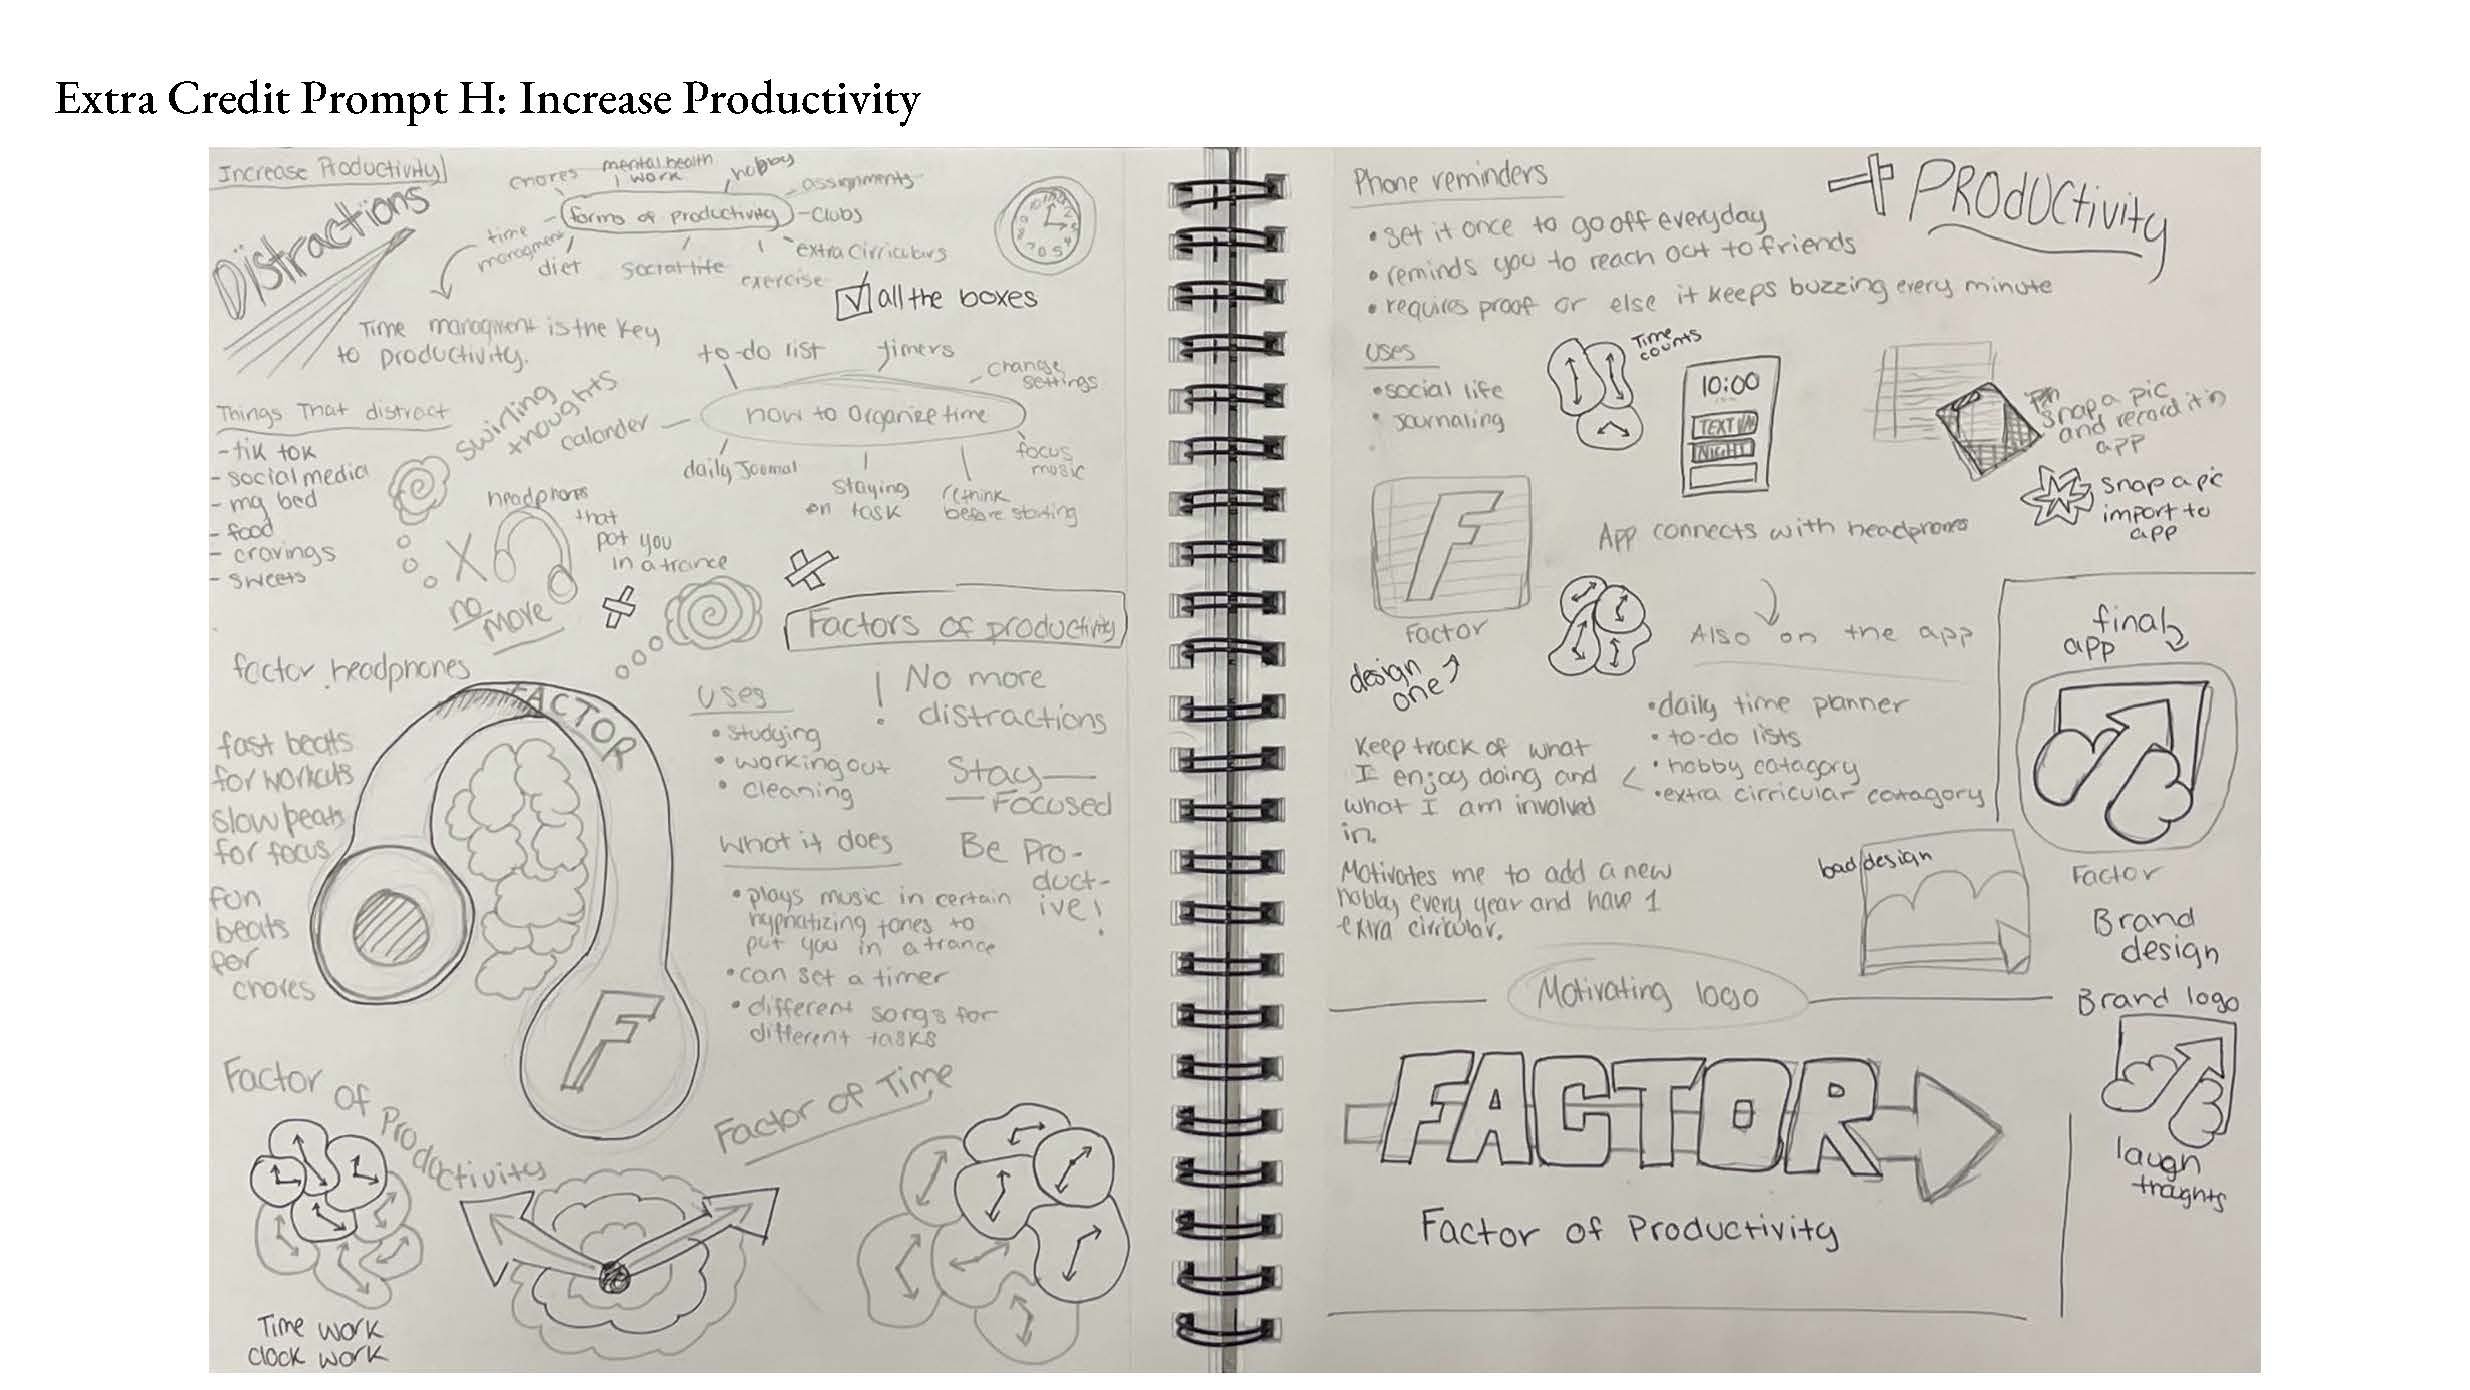 Extra Credit Prompt H: Increase Productivity
Increase Productivity
Distractions
chores
mental health
work
hobby
assignments
forms of productivity
clubs
time
managment
diet
social life
exercise
extra cirriculurs
all the boxes
Time managment is the key
to productivity.
Things That distract
- tik tok
- social media
- my bed
- food
- cravings
- sweets
swirling
thoughts
to-do list
timers
change
settings
calander
how to organize time
daily Journal
staying
on task
rethink
before starting
focus
music
headphones
that
put you
in a trance
no
more
Factors of productivity
factor headphones
FACTOR
fast beats
for workouts
slow beats
for focus
fun
beats
for
chores
F
uses
• studying
• working out
• cleaning
! No more
distractions
Stay
Focused
Be Pro-
duct-
ive!
what it does
• plays music in certain
hypnatizing tones to
put you in a trance
• can set a timer
• different songs for
different tasks
Factor of Productivity
Factor of Time
Time work
clock work
Phone reminders
• set it once to go off everyday
• reminds you to reach out to friends
• requires proof or else it keeps buzzing every minute
PRODUCtivity
uses
• social life
• Journaling
Time
counts
10:00
TEXT
NIGHT
snap a pic
and record it in
app
snap a pic
import to
app
F
Factor
design
one
App connects with headphones
Also on the app
• daily time planner
• to-do lists
• hobby catagory
• extra cirricular catagory
Keep track of what
I enjoy doing and
what I am involved
in.
Motivates me to add a new
hobby every year and have 1
extra cirricular.
final
app
Factor
Brand
design
bad design
Motivating logo
Brand logo
FACTOR
Factor of Productivity
laugh